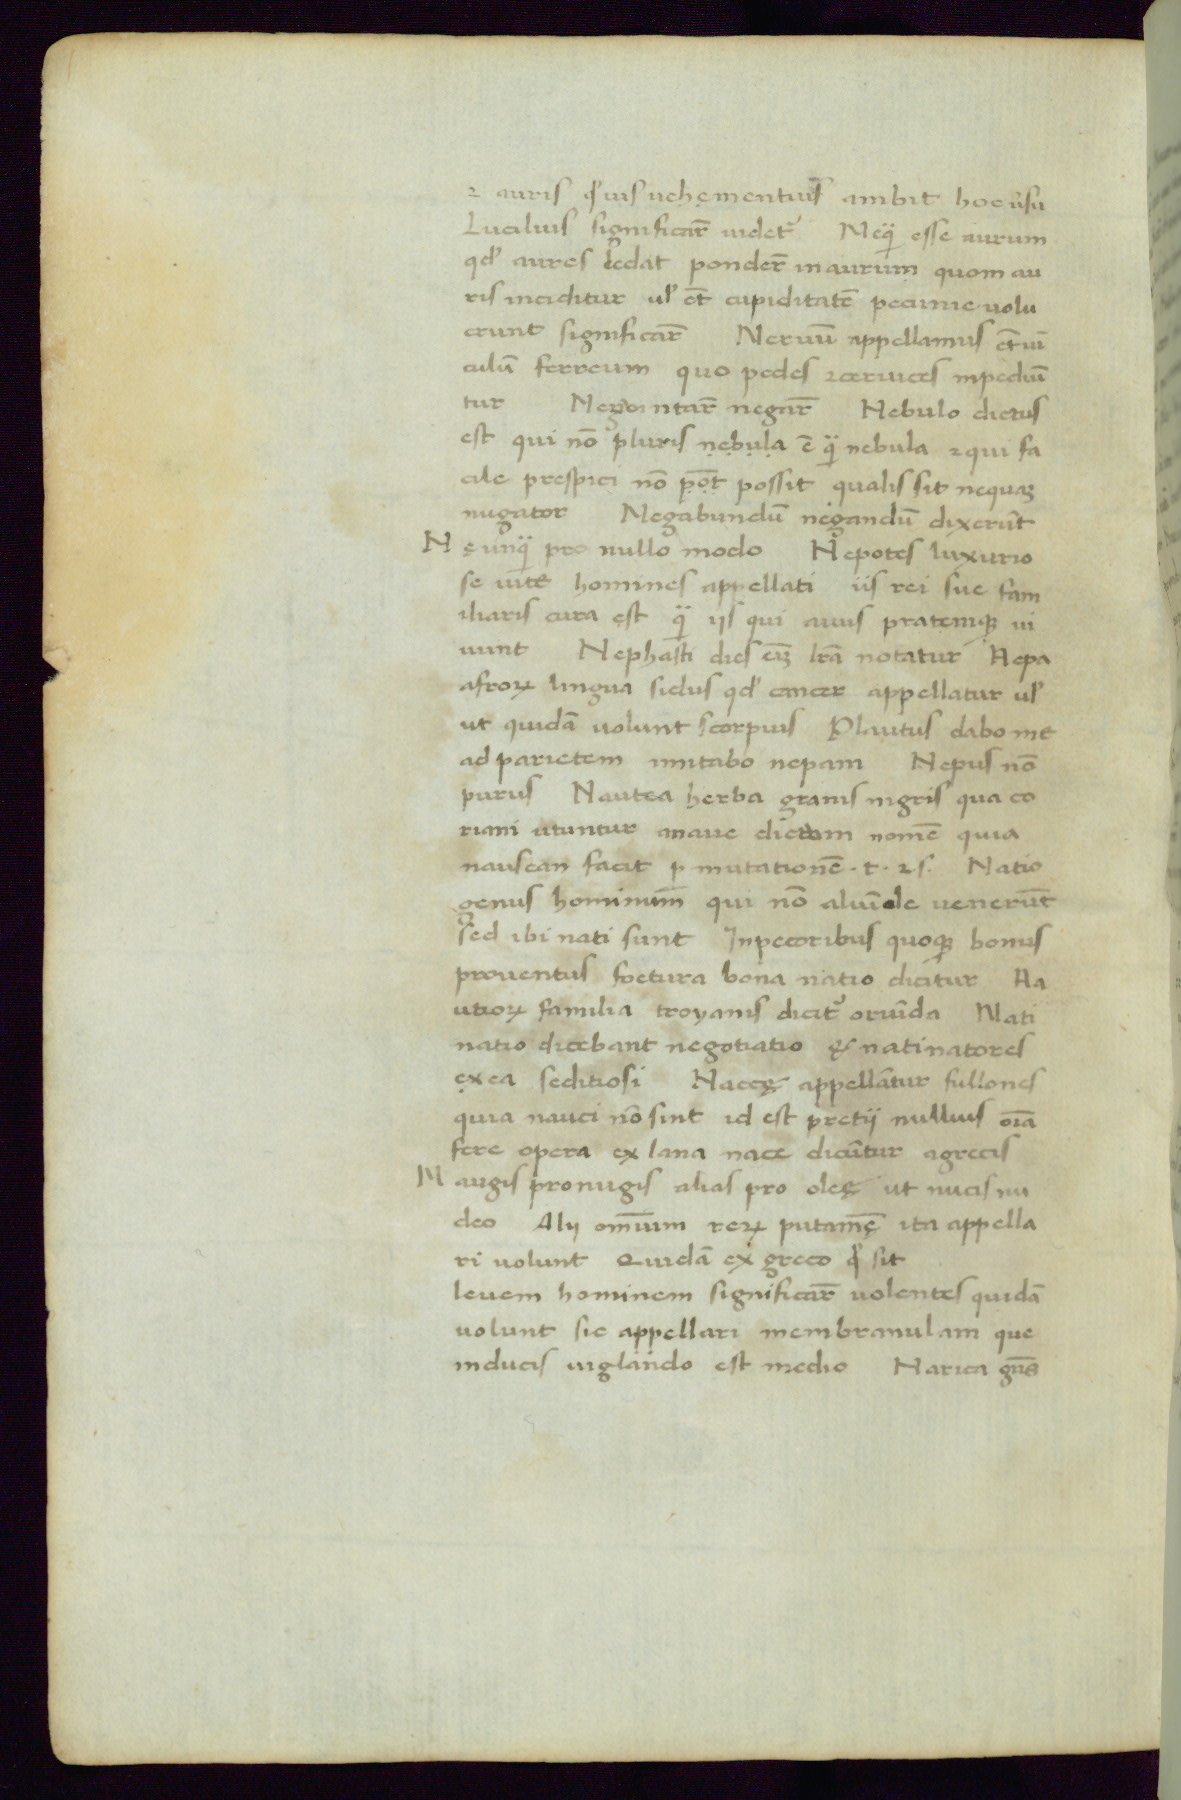 ⁊ auris qͥ uis uehementius ambit hoc usu
Lucilius significar̄ uidet᷑ Neq̈ esse aurum
qd' aures ledat ponder̄ inaurum quom au
ris inciditur ul' et̄ cupiditatē pecunie uolu
erunt significar̄ Neruū appellamus et̄ uī
culū ferreum quo pedes ⁊ ceruices inpediū
tur Negointar̄ negar̄ Nebulo dictus
est qui nō pluris nebula ē q̈ nebula ⁊ qui fa
cile prespici nō pot̄ possit qualis sit nequaꝫ
nugator Negabundū negandū dixerūt
Ne unq̈ pro nullo modo Nepotes luxurio
se uite homines appellati iis rei sue fam
iliaris cura est q̈ ijs qui auus pratemqꝫ ui
uunt Nephasti dies eīꝫ lrā notatur Nepa
afroꝝ lingua sidus qd' cancer appellatur ul'
ut quidā uolunt scorpius Plautus dabo me
ad parietem imitabo nepam Nepus nō
purus Nautea herba granis nigris qua co
riani utuntur anaue dictam nomē quia
nausean facit p mutationē · t · ⁊ s · Natio
genus hominum̄ qui nō aluīde venerūt
sed ibi nati sunt Inpecoribus quoqꝫ bonus
proventus foetura bona natio dicitur Na
utioꝝ familia troyanis dicit᷑ oruīda Nati
natio dicebant negotiatio & natinatores
ex ea seditiosi Naccę appellātur fullones
quia nauci nō sint id est pretij nullius oīa
fere opera ex lana nace dicūtur agrecis
Naugis pronugis alias pro oleę ut nucis nu
cleo Alij omīum reꝝ putamē ita appella
ri uolunt Quidā ex greco qͥ sit
leuem hominem significar̄ uolentes quidā
uolunt sic appellari membranulam que
inducis uiglando est medio Narica gn̄s